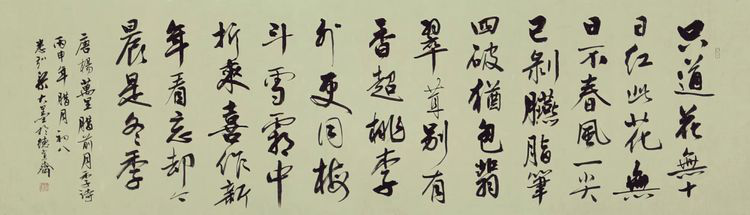 只道花無十
日紅此花無
日不春風一尖
已剝臙脂筆
四破猶包翡
翠茸別有
香超桃李
外更同梅
斗雪霜中
折來喜作新
年看忘却今
晨是冬季
唐楊萬里臘前月季詩
丙申年臘月初八
弘梁大於德齋